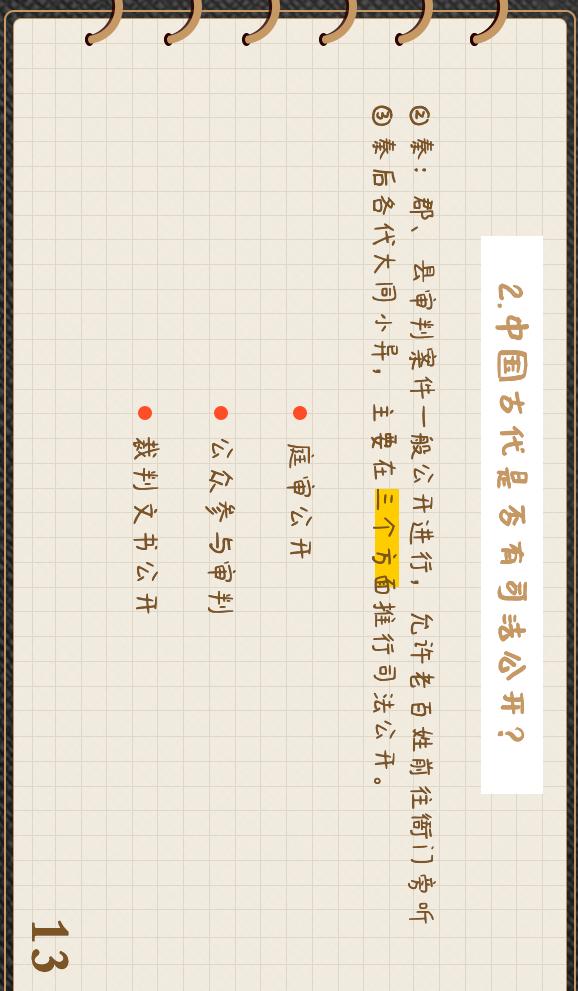 2.中国古代是否有司法公开？
②秦：郡、县审判案件一般公开进行，允许老百姓前往衙门旁听
③秦后各代大同小异，主要在三个方面推行司法公开。
庭审公开
公众参与审判
裁判文书公开
13